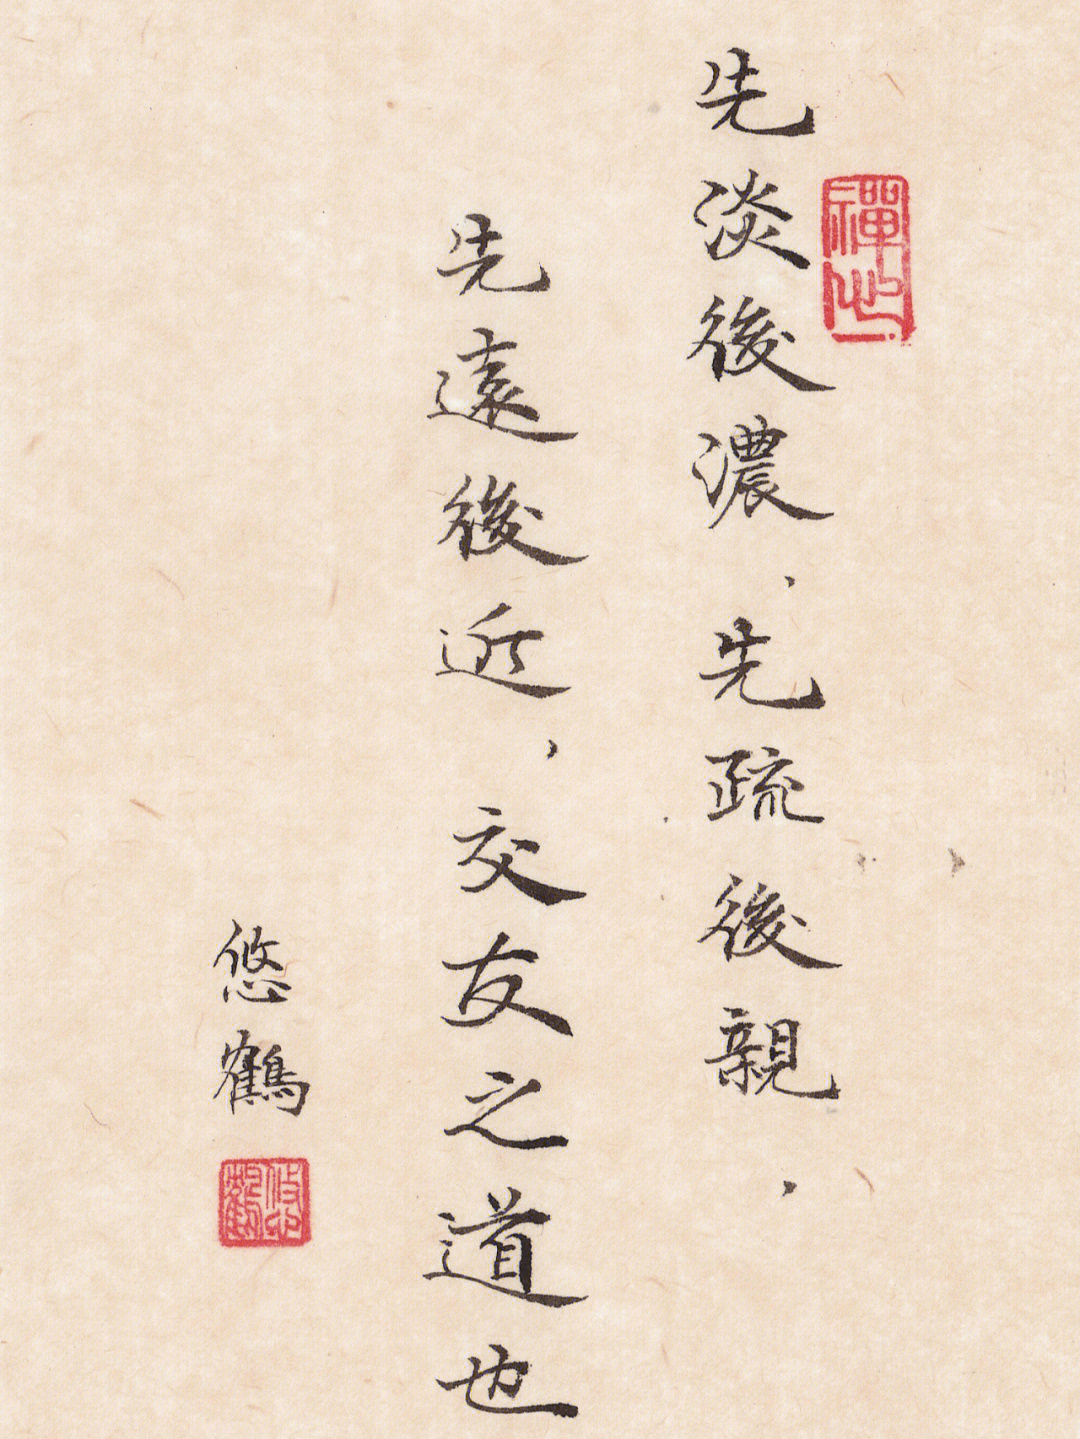 先淡後濃、先疏後親，
先遠後近，交友之道也
悠鶴
禪心
悠鶴